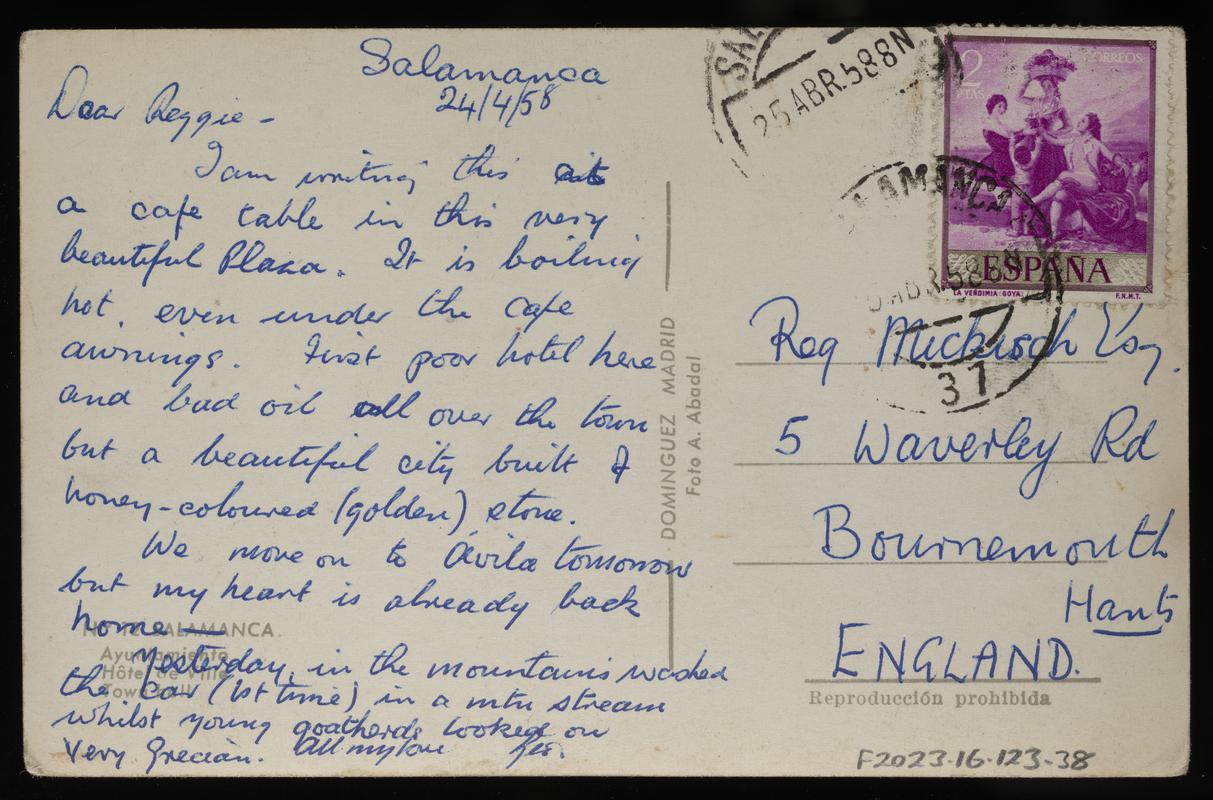 Salamanca
24/4/58
Dear Reggie -
I am writing this at
a cafe table in this very
beautiful Plaza. It is boiling
hot, even under the cafe
awnings. First poor hotel here
and bad oil all over the town
but a beautiful city built of
honey-coloured (golden) stone.
We move on to Ávila tomorrow
but my heart is already back
home —
Yesterday, in the mountains washed
the car (1st time) in a mtn stream
whilst young goatherds looked on
Very Grecian. All my love
SALAMANCA.
Ayuntamiento
Hôtel de Ville
Town
DOMINGUEZ MADRID
Foto A. Abadal
SAL
25 ABR.58 8N
2
PTAS
CORREOS
ESPAÑA
LA VENDIMIA (GOYA)
F.N.M.T.
ALAMANCA
ABR.58 8N
37
Reg Mickisch Esq.
5 Waverley Rd
Bournemouth
Hants
ENGLAND.
Reproducción prohibida
F2023-16-123-38